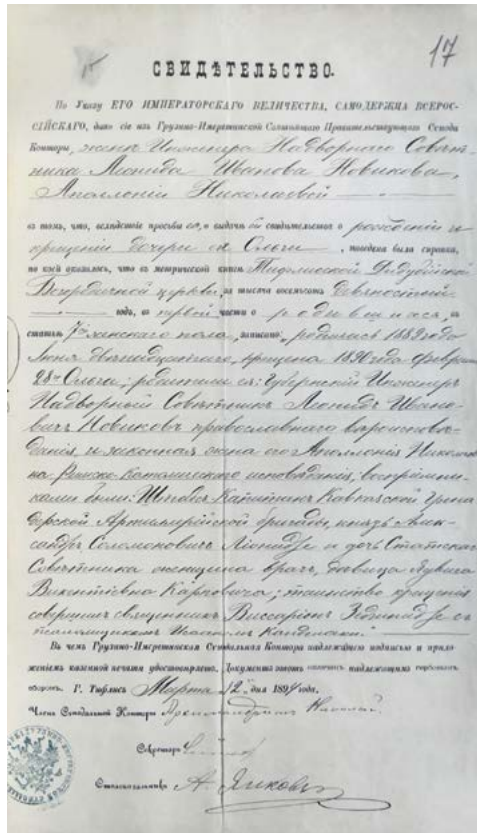 17
СВИДѢТЕЛЬСТВО.
По Указу ЕГО ИМПЕРАТОРСКАГО ВЕЛИЧЕСТВА, САМОДЕРЖЦА ВСЕРОС-
СІЙСКАГО, дано сіе изъ Грузино-Имеретинской Святѣйшаго Правительствующаго Сѵнода
Конторы, женѣ Инженера Надворнаго Совѣт-
ника Леонида Иванова Новикова,
Аполлоніи Николаевой
въ томъ, что, вслѣдствіе просьбы ея, о выдачѣ ей свидѣтельства о рожденіи и
крещеніи дочери ея Ольги, наведена была справка,
по коей оказалось, что въ метрической книгѣ Тифлисской Дидубійской
Богородичной церкви, за тысяча восемьсотъ девяностый
годъ, въ первой части о родившихся, въ
статьѣ 7й женскаго пола, записано: „родилась 1889 года
Іюня двѣнадцатаго, крещена 1890 года Февраля
28го Ольга; родители ея: Губернскій Инженеръ
Надворный Совѣтникъ Леонидъ Ивано-
вичъ Новиковъ православнаго вѣроисповѣ-
данія, и законная жена его Аполлонія Николаев-
на Римско-католическаго исповѣданія; воспріемни-
ками были: Штабсъ-Капитанъ Кавказской Грена-
дерской Артиллерійской бригады, князь Алек-
сандръ Соломоновичъ и дочь Статскаго
Совѣтника женщина врачъ, дѣвица Ядвига
Викентіевна Карповичъ; таинство крещенія
совершилъ священникъ Виссаріонъ съ
псаломщикомъ
Въ чемъ Грузино-Имеретинская Сѵнодальная Контора надлежащею подписью и прило-
женіемъ казенной печати удостовѣряетъ. Документъ этотъ оплаченъ надлежащимъ гербовымъ
сборомъ. Г. Тифлисъ Марта 12 дня 1894 года.
Членъ Сѵнодальной Конторы Архимандритъ Николай.
Секретарь
Столоначальникъ А. Яиковъ